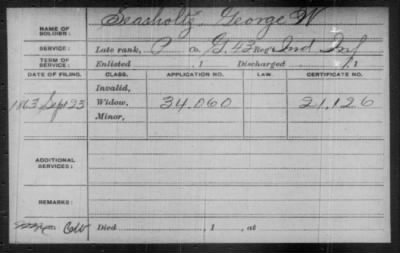 NAME OF SOLDIER: Seasholtz, George W
SERVICE: Late rank, P Co. G, 43 Reg't Ind Inf
TERM OF SERVICE: Enlisted , 1 Discharged , 1
DATE OF FILING. CLASS. APPLICATION NO. LAW. CERTIFICATE NO.
Invalid,
1863 Sept 23 Widow, 34.060 21,126
Minor,
ADDITIONAL SERVICES:
REMARKS:
Died , 1 , at